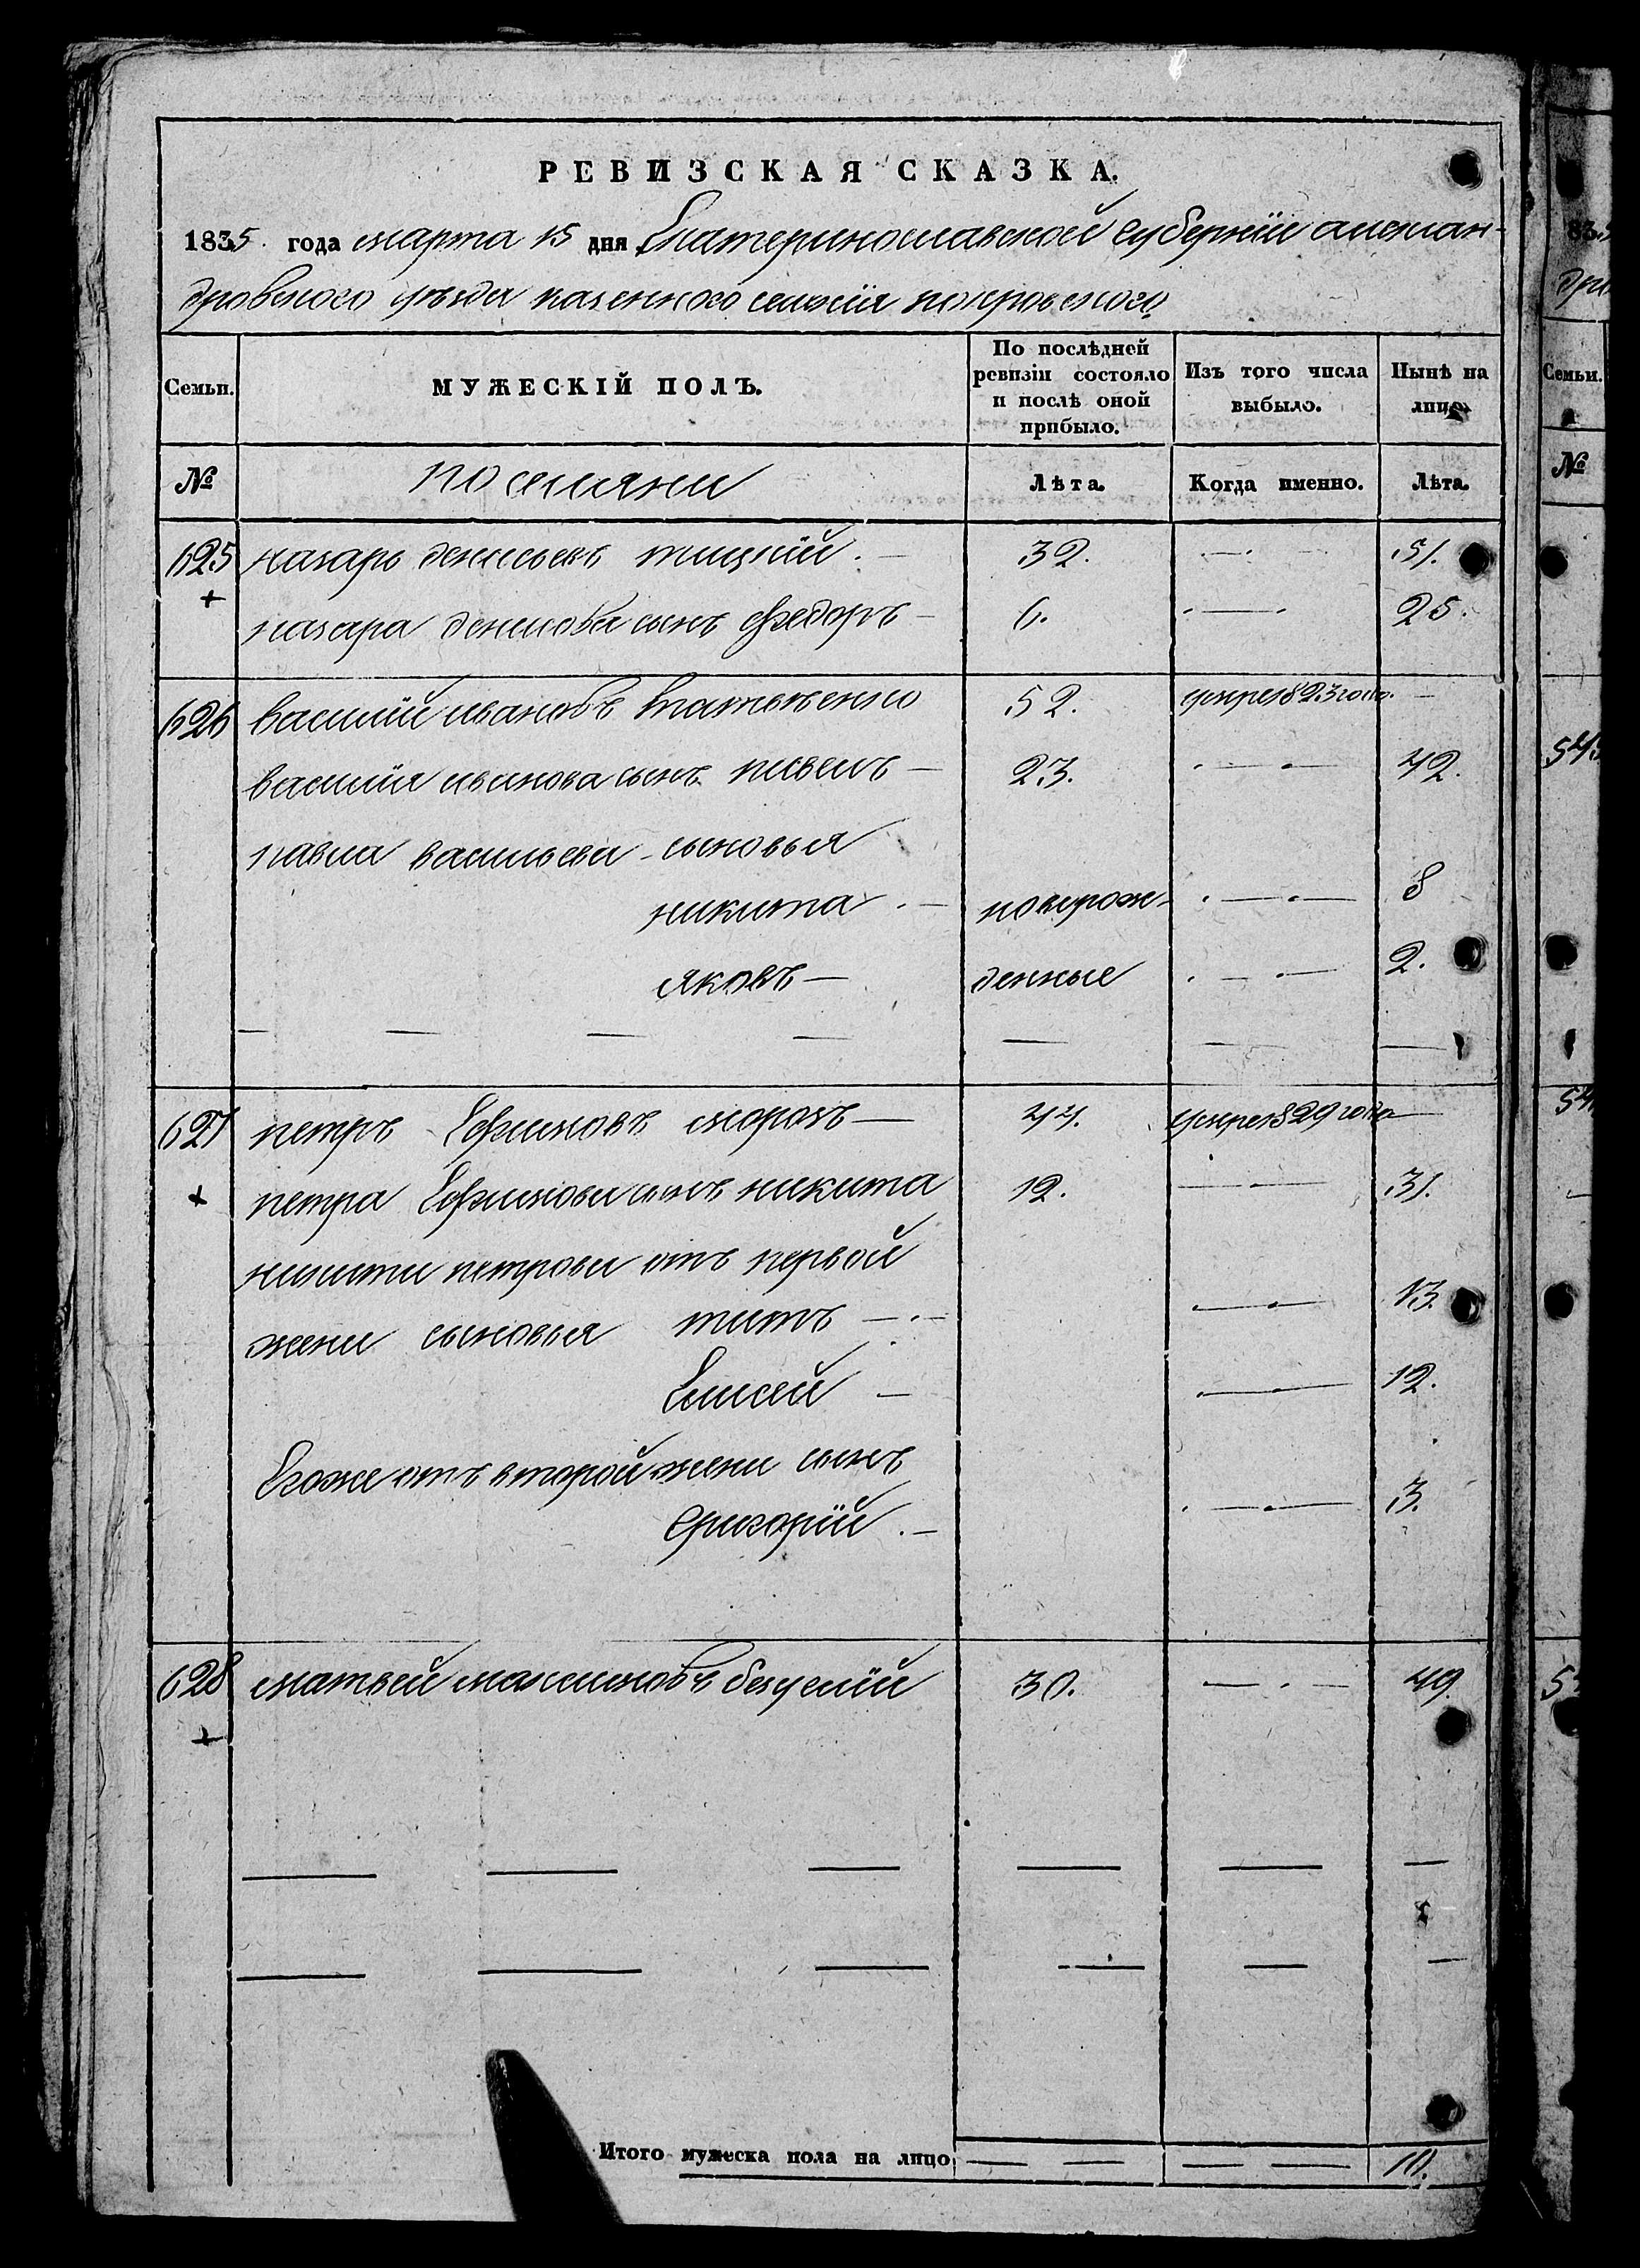 РЕВИЗСКАЯ СКАЗКА.
1835 года марта 15 дня Екатеринославской губернии алексан-
дровского уезда казенного селения покровского
Семьи.
МУЖЕСКІЙ ПОЛЪ.
По послѣдней ревизіи состояло и послѣ оной прибыло.
Изъ того числа выбыло.
Нынѣ на лицо.
№
поселяни
Лѣта.
Когда именно.
Лѣта.
625 назаръ денисьевъ 32. 51.
назара денисова сынъ Федоръ 6. 25.
626 василий ивановъ 52. умре 1823 года.
василия иванова сынъ павелъ 23. 42.
павла васильева сыновья
никита новорож- 8
яковъ денные 2.
627 петръ Ефимовъ морозъ 44. умре 1829 года
петра Ефимова сынъ никита 12. 31.
никити петрова отъ первой
жени сыновья титъ 13.
Елисей 12.
Егоже отъ второй жени сынъ
Григорий 3.
628 матвей максимовъ 30. 49.
Итого мужеска пола на лицо 10.
83
дро
Семьи.
№